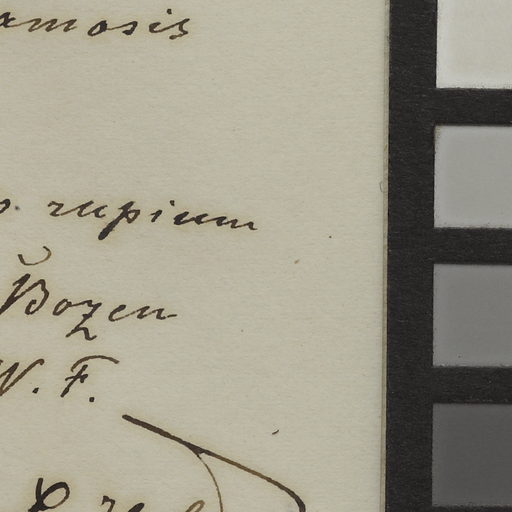 amosis
s rupium
Bozen
W. F.